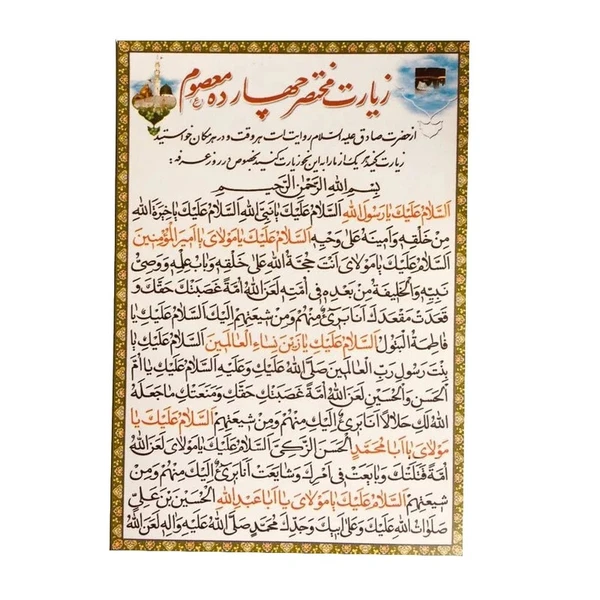 زیارت مختصر چهارده معصوم ع
از حضرت صادق علیه السلام روایت است هر وقت و در هر مکان خواستید
زیارت کنید هر یک از ما را به این نحو زیارت کنید بخصوص در روز عرفه :
بِسْمِ اللهِ الرَّحْمٰنِ الرَّحیمِ
اَلسَّلامُ عَلَیْكَ یا رَسُولَ اللهِ اَلسَّلامُ عَلَیْكَ یا نَبِیَّ اللهِ اَلسَّلامُ عَلَیْكَ یا خِیَرَةَ اللهِ
مِنْ خَلْقِهِ وَ اَمینَهُ عَلی وَحْیِهِ اَلسَّلامُ عَلَیْكَ یا مَوْلایَ یا اَمیرَ الْمُؤْمِنینَ
اَلسَّلامُ عَلَیْكَ یا مَوْلایَ اَنْتَ حُجَّةُ اللهِ عَلی خَلْقِهِ وَ بابُ عِلْمِهِ وَ وَصِیُّ
نَبِیِّهِ وَ الْخَلیفَةُ مِنْ بَعْدِهِ فی اُمَّتِهِ لَعَنَ اللهُ اُمَّةً غَصَبَتْكَ حَقَّكَ وَ
قَعَدَتْ مَقْعَدَكَ اَنَا بَریءٌ مِنْهُمْ وَ مِنْ شیعَتِهِمْ اِلَیْكَ اَلسَّلامُ عَلَیْكِ یا
فاطِمَةُ الْبَتُولُ اَلسَّلامُ عَلَیْكِ یا زَیْنَ نِساءِ الْعالَمینَ اَلسَّلامُ عَلَیْكِ یا
بِنْتَ رَسُولِ رَبِّ الْعالَمینَ صَلَّی اللهُ عَلَیْكِ وَ عَلَیْهِ اَلسَّلامُ عَلَیْكِ یا اُمَّ
الْحَسَنِ وَ الْحُسَیْنِ لَعَنَ اللهُ اُمَّةً غَصَبَتْكِ حَقَّكِ وَ مَنَعَتْكِ ما جَعَلَهُ
اللهُ لَكِ حَلالًا اَنَا بَریءٌ اِلَیْكِ مِنْهُمْ وَ مِنْ شیعَتِهِمْ اَلسَّلامُ عَلَیْكَ یا
مَوْلایَ یا اَبا مُحَمَّدٍ الْحَسَنَ الزَّکِیَّ اَلسَّلامُ عَلَیْكَ یا مَوْلایَ لَعَنَ اللهُ
اُمَّةً قَتَلَتْكَ وَ بایَعَتْ فی اَمْرِكَ وَ شایَعَتْ اَنَا بَریءٌ اِلَیْكَ مِنْهُمْ وَ مِنْ
شیعَتِهِمْ اَلسَّلامُ عَلَیْكَ یا مَوْلایَ یا اَبا عَبْدِ اللهِ الْحُسَیْنَ بْنَ عَلِیٍّ
صَلَواتُ اللهِ عَلَیْكَ وَ عَلی اَبیكَ وَ جَدِّكَ مُحَمَّدٍ صَلَّی اللهُ عَلَیْهِ وَ الِهِ لَعَنَ اللهُ